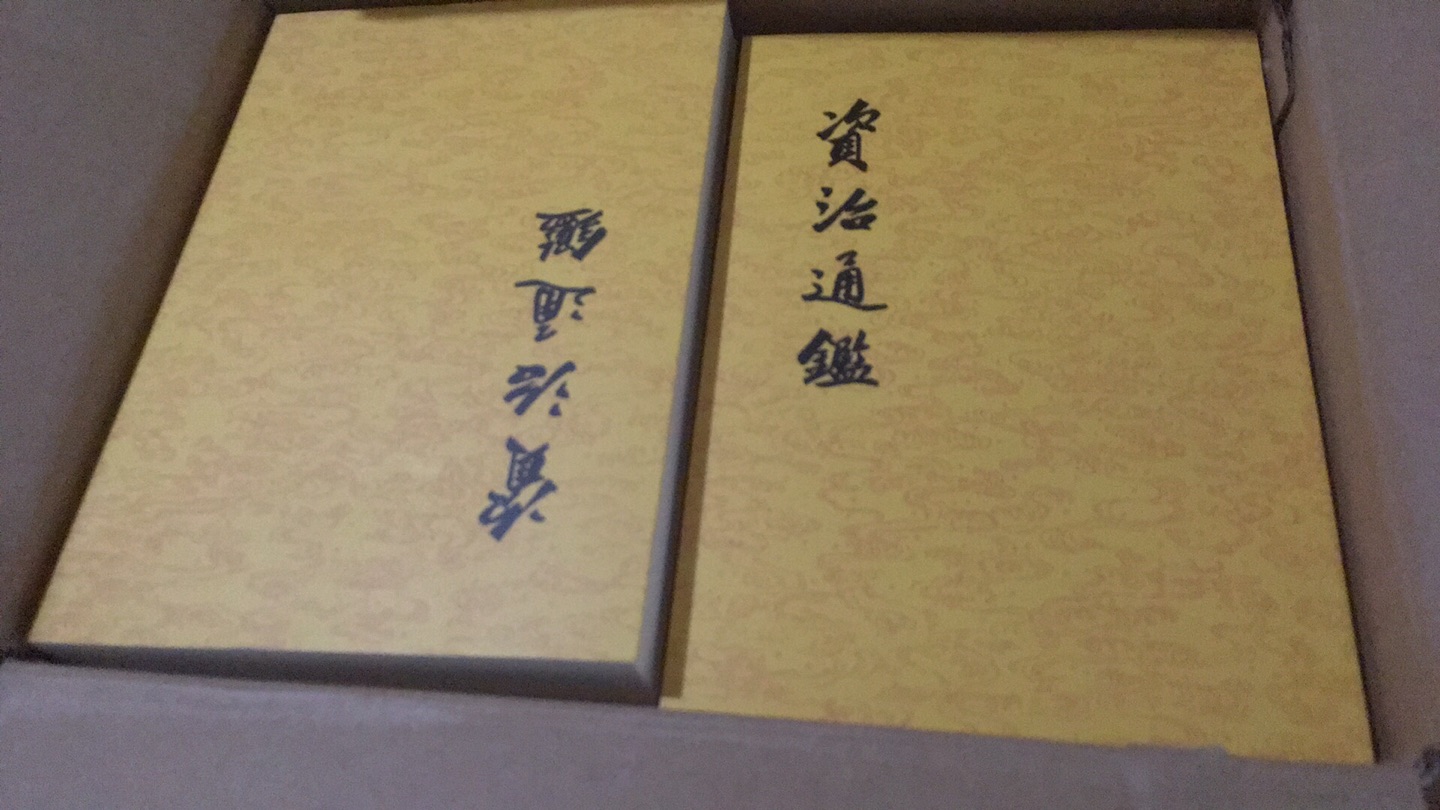 資治通鑑
資治通鑑